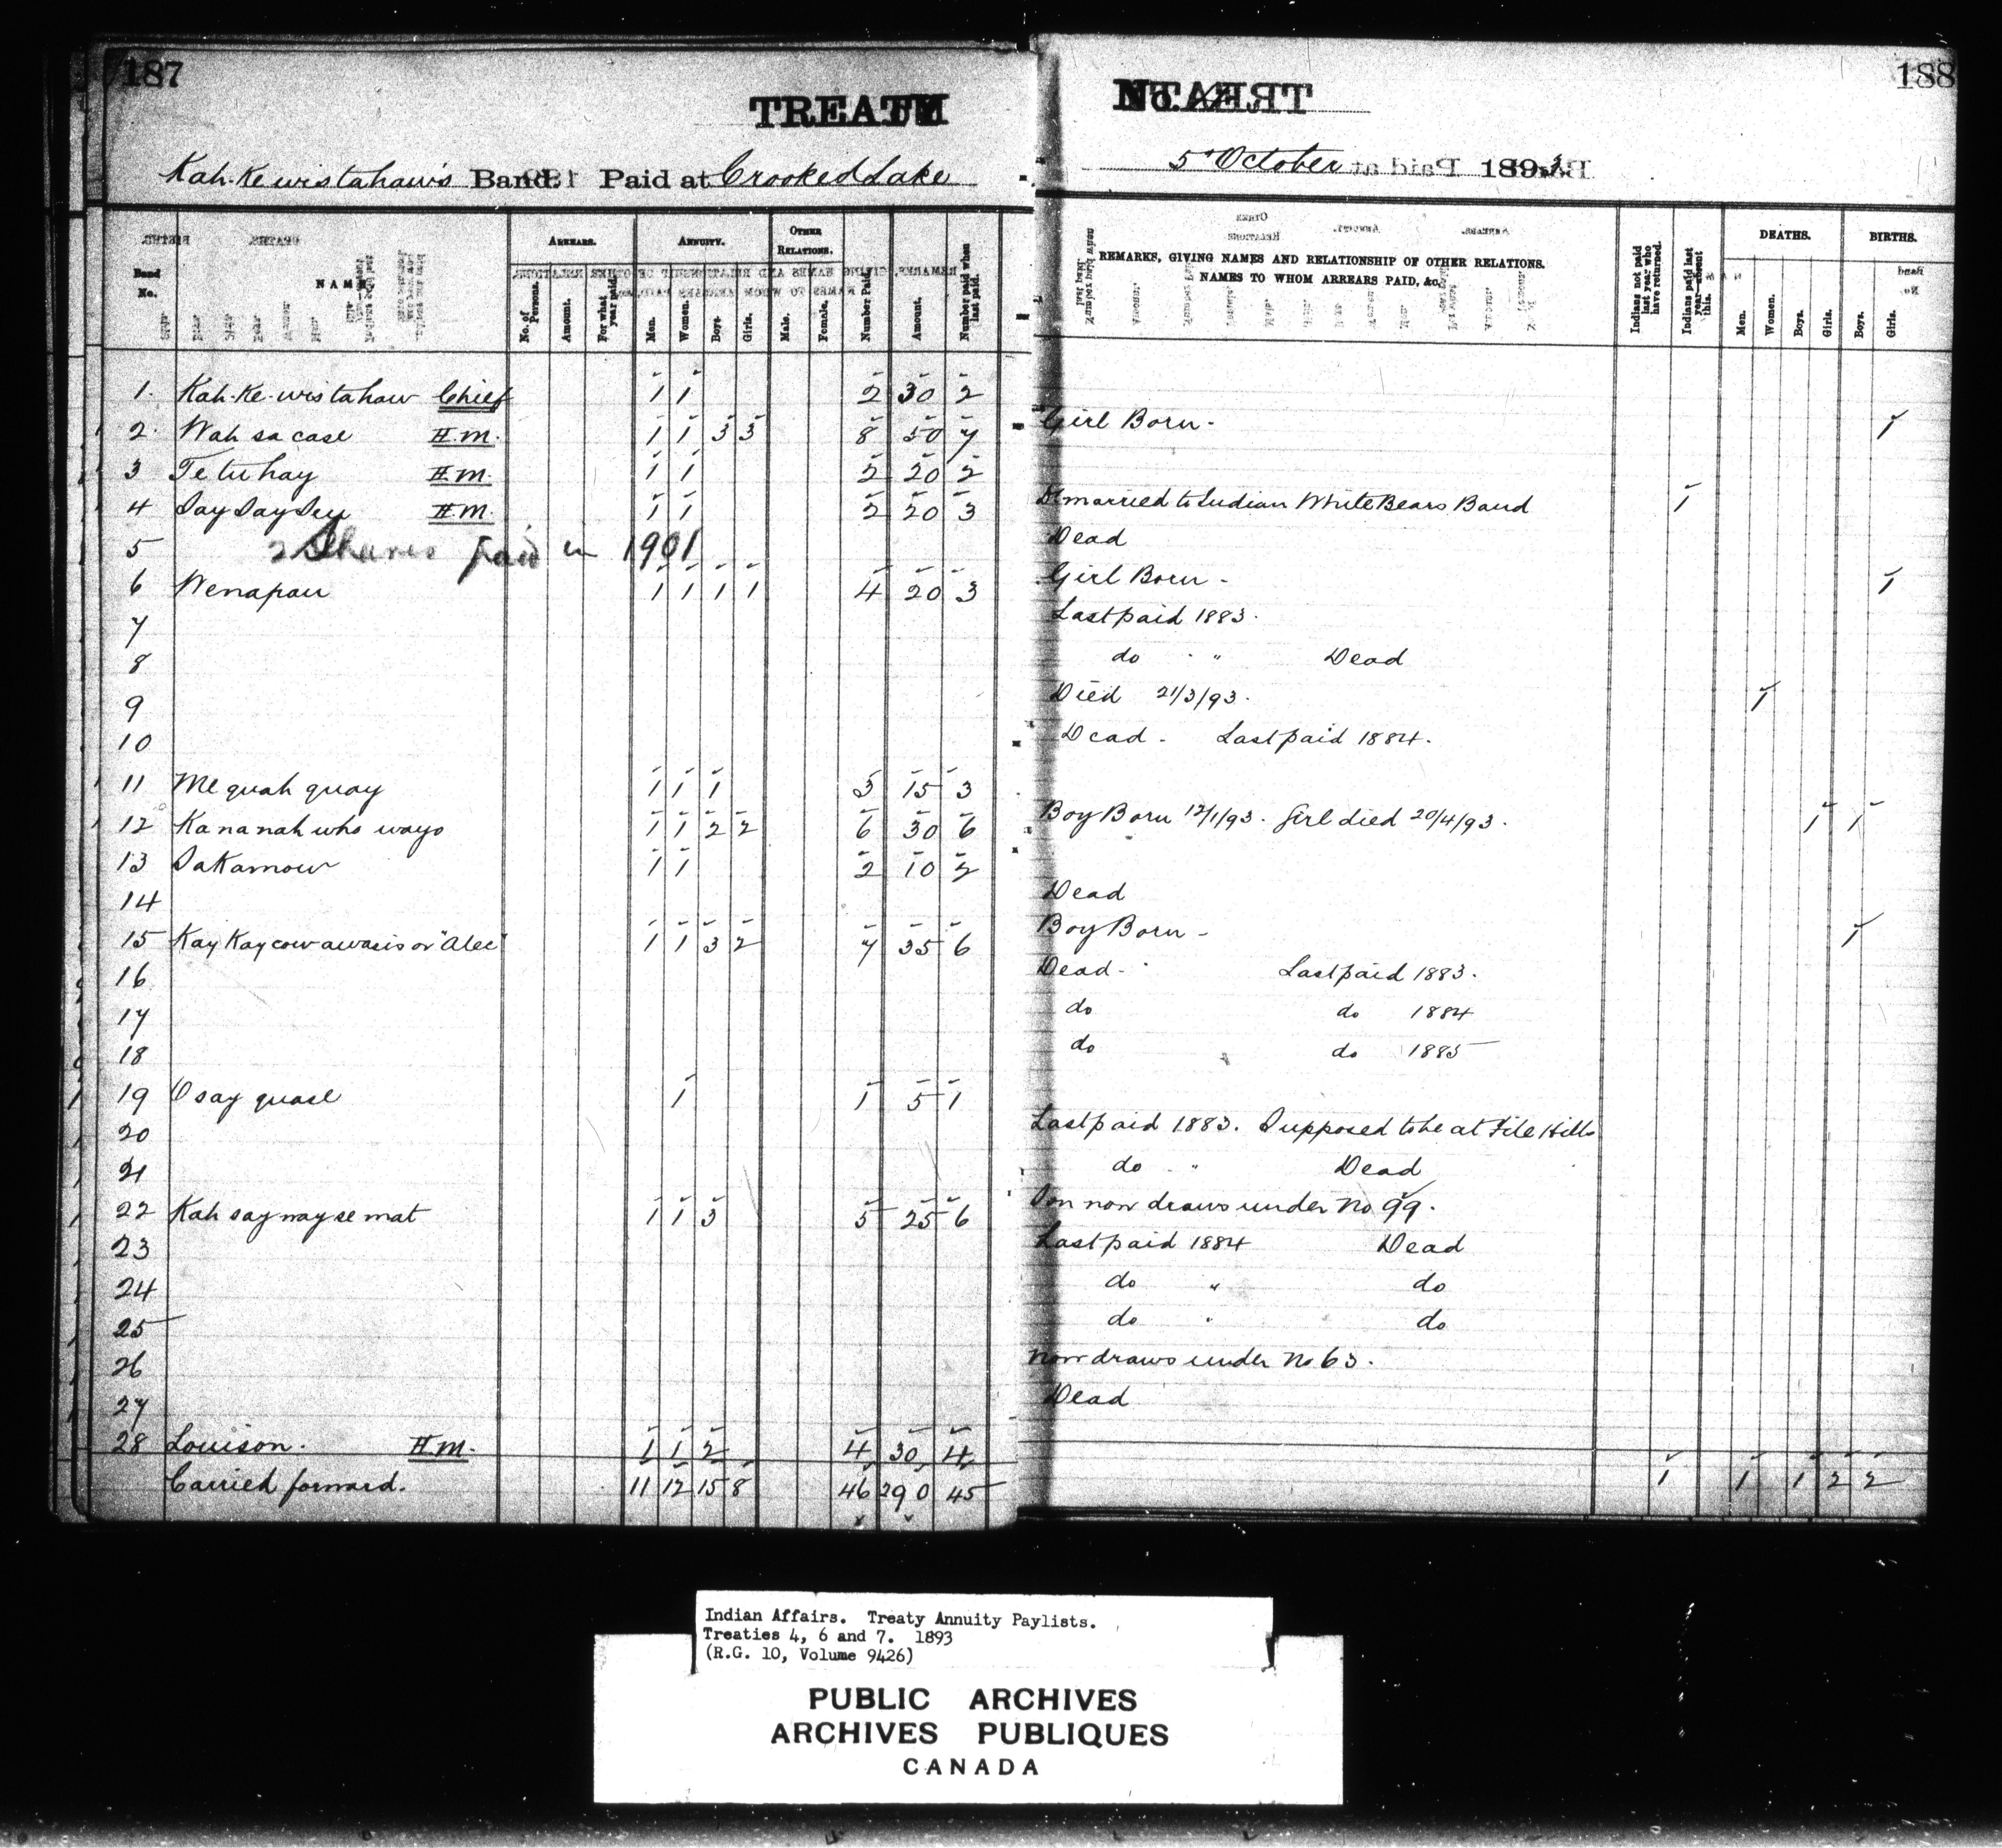 187
TREATY
Kah-Ke wis tahaw's Band. Paid at Crooked Lake
Band No.
NAME
ARREARS.
No. of Persons.
Amount.
For what year paid.
ANNUITY.
Men.
Women.
Boys.
Girls.
OTHER RELATIONS.
Male.
Female.
Number Paid.
Amount.
Number paid when last paid.
1. Kah-Ke-wis tahaw Chief 1 1 2 30 2
2. Wah sa case H.M. 1 1 3 3 8 50 7
3 Te tu hay H.M. 1 1 2 20 2
4 Say Say Seu H.M. 1 1 2 20 3
5 2 Shares paid in 1901
6 Wenapau 1 1 1 1 4 20 3
7
8
9
10
11 Me quah quay 1 1 1 3 15 3
12 Ka na nah who wayo 1 1 2 2 6 30 6
13 Sakamow 1 1 2 10 2
14
15 Kay Kay cow awasis or "Alec" 1 1 3 2 7 35 6
16
17
18
19 O say quase 1 1 5 1
20
21
22 Kah say way se mat 1 1 3 5 25 6
23
24
25
26
27
28 Louison. H.M. 1 1 2 4 30 4
Carried forward. 11 12 15 8 46 290 45
188
No.
5" October 1893
REMARKS, GIVING NAMES AND RELATIONSHIP OF OTHER RELATIONS.
NAMES TO WHOM ARREARS PAID, &c.
Indians not paid last year who have returned.
Indians paid last year—absent this.
DEATHS.
Men.
Women.
Boys.
Girls.
BIRTHS.
Boys.
Girls.
Girl Born - 1
married to Indian White Bears Band 1
Dead
Girl Born - 1
Last paid 1883.
do " Dead
Died 21/3/93. 1
Dead - Last paid 1884.
Boy Born 12/1/93. Girl died 20/4/93. 1 1
Dead
Boy Born - 1
Dead - Last paid 1883.
do do 1884
do do 1885
Last paid 1883. Supposed to be at File Hills
do " Dead
Son now draws under No 99.
Last paid 1884 Dead
do " do
do " do
Now draws under No 63.
Dead
1 1 1 2 2
Indian Affairs. Treaty Annuity Paylists.
Treaties 4, 6 and 7. 1893
(R.G. 10, Volume 9426)
PUBLIC ARCHIVES
ARCHIVES PUBLIQUES
CANADA